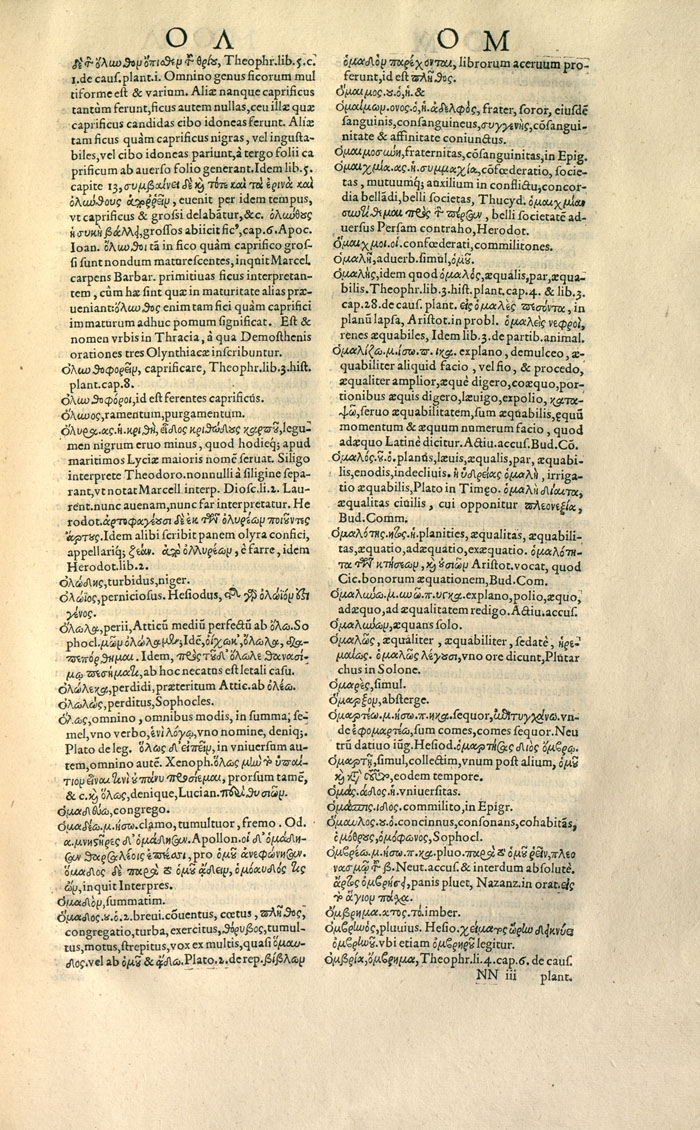 Ο Λ
δὲ τ ὄλωθον ὄπισθεν τ θρίου, Theophr.lib.5.c.
1.de caus.plant.i. Omnino genus ficorum mul
tiforme est & varium. Aliæ nanque caprificus
tantùm ferunt, ficus autem nullas, ceu illæ quæ
caprificus candidas cibo idoneas ferunt. Aliæ
tam ficus quàm caprificus nigras, vel ingusta-
biles, vel cibo idoneas pariunt, à tergo folii ca
prificum ab auerso folio generant. Idem lib.5.
capite 13, συμβαίνει δὲ κ τότε καὶ τὰ ἐρινὰ καὶ
ὀλώθους euenit per idem tempus,
vt caprificus & grossi delabātur, &c. ὀλώθους
ἡ συκῆ βάλλῃ, grossos abiicit fic', cap.6. Apoc.
Ioan. ὄλωθοι tā in fico quàm caprifico gros-
si sunt nondum maturescentes, inquit Marcel.
carpens Barbar. primitiuas ficus interpretan-
tem, cùm hæ sint quæ in maturitate alias præ-
ueniant: ὄλωθος enim tam fici quàm caprifici
immaturum adhuc pomum significat. Est &
nomen vrbis in Thracia, à qua Demosthenis
orationes tres Olynthiacæ inscribuntur.
Ὀλωθοφορεῖν, caprificare, Theophr.lib.3.hist.
plant.cap.8.
Ὀλωθοφόροι, id est ferentes caprificus.
ramentum, purgamentum.
Ὄλυρα.ας.ἡ.κριθὴ, εἶδος κριθώδους καρποῦ, legu-
men nigrum eruo minus, quod hodieq; apud
maritimos Lyciæ maioris nomē seruat. Siligo
interprete Theodoro. nonnulli à siligine sepa-
rant, vt notat Marcell. interp. Diosc. li.2. Lau-
rent. nunc auenam, nunc far interpretatur. He
rodot. ἀρτοφαγέουσι δὲ ἐκ τῶν ὀλυρέων ποιεῦντες
ἄρτους. Idem alibi scribit panem olyra confici,
appellariq; ζεάν. ἀπὸ ὀλλυρέων, è farre, idem
Herodot.lib.2.
Ὀλώδης, turbidus, niger.
Ὀλώϊος, perniciosus. Hesiodus,
γένος.
Ὄλωλα, perii, Atticū mediū perfectū ab ὀλῶ. So
phocl. Idē, οἴχωκ', ὄλωλα, δια-
πεπόρθημαι. Idem, ὄλωλε θανασί-
μῳ πεσήματι, ab hoc necatus est letali casu.
Ὀλώλεκα, perdidi, præteritum Attic. ab ὀλέω.
Ὀλωλὼς, perditus, Sophocles.
Ὅλως, omnino, omnibus modis, in summa; se-
mel, vno verbo, ἑνὶ λόγῳ, vno nomine, deniq;.
Plato de leg. ὅλως δ' εἰπεῖν, in vniuersum au-
tem, omnino autē. Xenoph. ὅλως μὲν
prorsum tamē,
& c. κ ὅλως, denique, Lucian.
Ὁμαδεύω, congrego.
Ὁμαδέω.μ.ήσω. clamo, tumultuor, fremo. Od.
α. μνηστῆρες δ' ὁμάδησαν. Apollon. οἱ δ' ὁμάδη-
σαν θαρσαλέοις ἐπέεσσι, pro ὁμοῦ ἀνεφώνησαν.
ὅμαδος δὲ παρὰ τὸ ὁμοῦ ᾄδειν, ὁμοαυδός τις
ὢν, inquit Interpres.
Ὁμαδὸν, summatim.
Ὅμαδος.ου.ὁ.2.breui. cōuentus, cœtus, πλῆθος,
congregatio, turba, exercitus, θόρυβος, tumul-
tus, motus, strepitus, vox ex multis, quasi ὁμαυ-
δος. vel ab ὁμοῦ & ᾄδω. Plato.2.de rep. βίβλων
Ο Μ
ὅμαδον παρέχονται, librorum aceruum pro-
ferunt, id est πλῆθος.
Ὅμαιμος.ου.ὁ,ἡ.&
Ὁμαίμων.ονος.ὁ.ἡ.ἀδελφὸς, frater, soror, eiusdē
sanguinis, consanguineus, συγγενὴς, cōsangui-
nitate & affinitate coniunctus.
Ὁμαιμοσύνη, fraternitas, cōsanguinitas, in Epig.
Ὁμαιχμία.ας.ἡ.συμμαχία, cōfœderatio, socie-
tas, mutuumq; auxilium in conflictu, concor-
dia bellādi, belli societas, Thucyd. ὁμαιχμίαν
συντίθεμαι πρὸς τ πέρσην, belli societatē ad-
uersus Persam contraho, Herodot.
Ὅμαιχμοι.οἱ. confœderati, commilitones.
Ὁμαλῆ, aduerb. simul, ὁμοῦ.
Ὁμαλὴς, idem quod ὁμαλὸς, æqualis, par, æqua-
bilis. Theophr.lib.3.hist.plant.cap.4. & lib.3.
cap.28.de caus.plant. εἰς ὁμαλὲς πεσόντα, in
planū lapsa, Aristot.in probl. ὁμαλεῖς νεφροὶ,
renes æquabiles, Idem lib.3.de partib.animal.
Ὁμαλίζω.μ.ίσω.π.ικα. explano, demulceo, æ-
quabiliter aliquid facio, vel fio, & procedo,
æqualiter amplior, æquè digero, coæquo, por-
tionibus æquis digero, læuigo, expolio, κατα-
ψῶ, seruo æquabilitatem, sum æquabilis, equū
momentum & æquum numerum facio, quod
adæquo Latinè dicitur. Actiu.accus. Bud. Cō.
Ὁμαλὸς.οῦ.ὁ. planus, læuis, æqualis, par, æquabi-
lis, enodis, indecliuis. ἡ ὑδρείας ὁμαλὴ, irriga-
tio æquabilis, Plato in Timęo. ὁμαλὴ δίαιτα,
æqualitas ciuilis, cui opponitur πλεονεξία,
Bud. Comm.
Ὁμαλότης.ητος.ἡ. planities, æqualitas, æquabili-
tas, æquatio, adæquatio, exæquatio. ὁμαλότη-
τα τῶν κτήσεων, κ οὐσιῶν Aristot. vocat, quod
Cic. bonorum æquationem, Bud. Com.
Ὁμαλύνω.μ.υνῶ.π.υγκα. explano, polio, æquo,
adæquo, ad æqualitatem redigo. Actiu.accus.
Ὁμαλύνων, æquans solo.
Ὁμαλῶς, æqualiter, æquabiliter, sedatè, ἠρε-
μαίως. ὁμαλῶς λέγουσι, vno ore dicunt, Plutar
chus in Solone.
Ὁμαρὲς, simul.
Ὄμαρξον, absterge.
Ὁμαρτέω.μ.ήσω.π.ηκα. sequor, ἐπιτυγχάνω. vn-
de ἐφομαρτέω, sum comes, comes sequor. Neu
trū datiuo iūg. Hesiod. ὁμαρτήσας διὸς ὄμβρῳ.
Ὁμαρτῆ, simul, collectim, vnum post alium, ὁμοῦ
eodem tempore.
Ὁμὰς.άδος.ἡ. vniuersitas.
ιδος. commilito, in Epigr.
Ὅμαυλος.ου.ὁ. concinnus, consonans, cohabitās,
ὁμόθρους, ὁμόφωνος, Sophocl.
Ὀμβρέω.μ.ήσω.π.κα. pluo. παρὰ τὸ ὁμοῦ ῥεῖν, πλεο
νασμῷ τ β. Neut.accus. & interdum absolutè.
ἄρτος ὀμβρήσῃ, panis pluet, Nazanz. in orat. εἰς
τὸ ἅγιον πάσχα.
Ὄμβρημα.ατος.τὸ. imber.
Ὀμβρινὸς, pluuius. Hesio. χείματος ὥρίω δεικνύει
ὀμβρινοῦ. vbi etiam ὀμβρηροῦ legitur.
Ὀμβρία, ὄμβρημα, Theophr.li.4.cap.6. de caus.
NN iii plant.